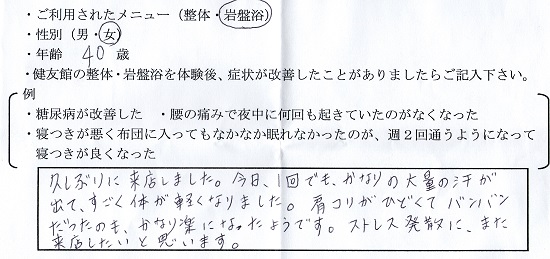 ・ご利用されたメニュー（整体・岩盤浴）
・性別（男・女）
・年齢 40 歳
・健友館の整体・岩盤浴を体験後、症状が改善したことがありましたらご記入下さい。
例
・糖尿病が改善した ・腰の痛みで夜中に何回も起きていたのがなくなった
・寝つきが悪く布団に入ってもなかなか眠れなかったのが、週２回通うようになって
寝つきが良くなった
久しぶりに来店しました。今日、1回でも、かなりの大量の汗が
出て、すごく体が軽くなりました。肩コリがひどくてバンバン
だったのも、かなり楽になったようです。ストレス発散に、また
来店したいと思います。